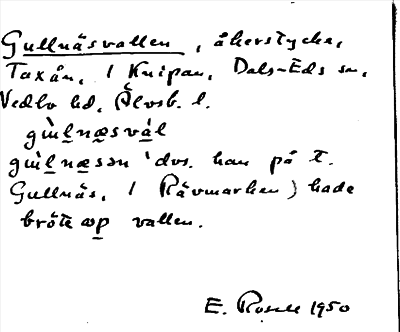 Gullnäsvallen, åkerstycke,
Taxån, 1 Knipan, Dals-Eds sn,
Vedbo hd, Älvsb. l.
gùl̲næ̲svál
gùl̲næ̲sən 'dvs. han på t.
Gullnäs, 1 Rävmarken) hade
bröte op̲ vallen.
E. Rosell 1950